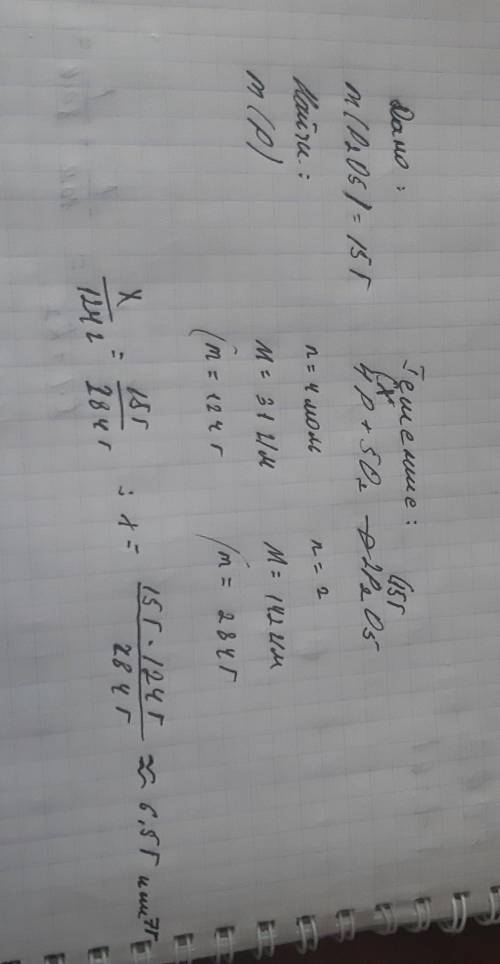 Дано:
m(P2O5) = 15 г
Найти:
m(P)
Решение:
x 15г
4P + 5O2 → 2P2O5
n = 4 моль n = 2
M = 31 г/м M = 142 г/м
m = 124 г m = 284 г
x/124 г = 15г/284 г ; x = 15 г · 124 г/284 г ≈ 6,5 г или 7г